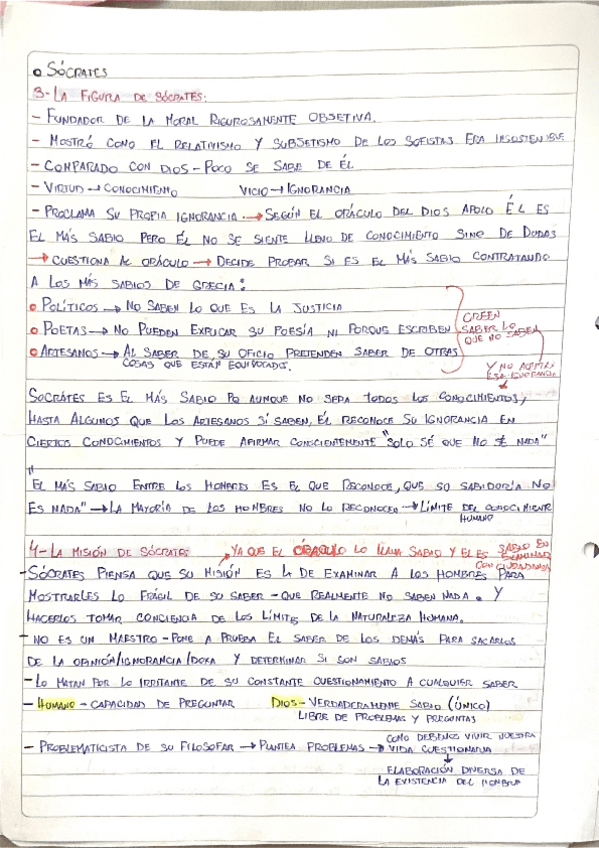 • SÓCRATES
3- LA FIGURA DE SÓCRATES:
- FUNDADOR DE LA MORAL RIGUROSAMENTE OBJETIVA.
- MOSTRÓ COMO EL RELATIVISMO Y SUBJETISMO DE LOS SOFISTAS ERA INSOSTENIBLE
- COMPARADO CON DIOS - POCO SE SABE DE ÉL
- VIRTUD → CONOCIMIENTO VICIO → IGNORANCIA
- PROCLAMA SU PROPIA IGNORANCIA → SEGÚN EL ORÁCULO DEL DIOS APOLO ÉL ES
EL MÁS SABIO PERO ÉL NO SE SIENTE LLENO DE CONOCIMIENTO SINO DE DUDAS
→ CUESTIONA AL ORÁCULO → DECIDE PROBAR SI ES EL MÁS SABIO CONTRATANDO
A LOS MÁS SABIOS DE GRECIA:
• POLÍTICOS → NO SABEN LO QUE ES LA JUSTICIA
• POETAS → NO PUEDEN EXPLICAR SU POESÍA NI PORQUE ESCRIBEN
• ARTESANOS → AL SABER DE SU OFICIO PRETENDEN SABER DE OTRAS
COSAS QUE ESTÁN EQUIVOCADOS.
CREEN
SABER LO
QUE NO SABEN
Y NO ACEPTAN
ESA IGNORANCIA
SOCRÁTES ES EL MÁS SABIO PQ AUNQUE NO SEPA TODOS LOS CONOCIMIENTOS,
HASTA ALGUNOS QUE LOS ARTESANOS SÍ SABEN, ÉL RECONOCE SU IGNORANCIA EN
CIERTOS CONOCIMIENTOS Y PUEDE AFIRMAR CONSCIENTEMENTE "SOLO SÉ QUE NO SÉ NADA"
"EL MÁS SABIO ENTRE LOS HOMBRES ES EL QUE RECONOCE, QUE SU SABIDORÍA NO
ES NADA" → LA MAYORÍA DE LOS HOMBRES NO LO RECONOCEN → LÍMITE DEL CONOCIMIENTO
HUMANO
4- LA MISIÓN DE SÓCRATES → YA QUE EL ORÁCULO LO LLAMA SABIO Y EL ES SABIO EN
EXAMINAR
CONCIUDADANOS
- SÓCRATES PIENSA QUE SU MISIÓN ES LA DE EXAMINAR A LOS HOMBRES PARA
MOSTRARLES LO FRÁGIL DE SU SABER - QUE REALMENTE NO SABEN NADA. Y
HACERLOS TOMAR CONCIENCIA DE LOS LÍMITES DE LA NATURALEZA HUMANA.
- NO ES UN MAESTRO - PONE A PRUEBA EL SABER DE LOS DEMÁS PARA SACARLOS
DE LA OPINIÓN/IGNORANCIA/DOXA Y DETERMINAR SI SON SABIOS
- LO MATAN POR LO IRRITANTE DE SU CONSTANTE CUESTIONAMIENTO A CUALQUIER SABER
- HUMANO - CAPACIDAD DE PREGUNTAR DIOS - VERDADERAMENTE SABIO (ÚNICO)
LIBRE DE PROBLEMAS Y PREGUNTAS
- PROBLEMATICISTA DE SU FILOSOFAR → PLANTEA PROBLEMAS → COMO DEBEMOS VIVIR NUESTRA
VIDA CUESTIONARIA
ELABORACIÓN DIVERSA DE
LA EXISTENCIA DEL HOMBRE